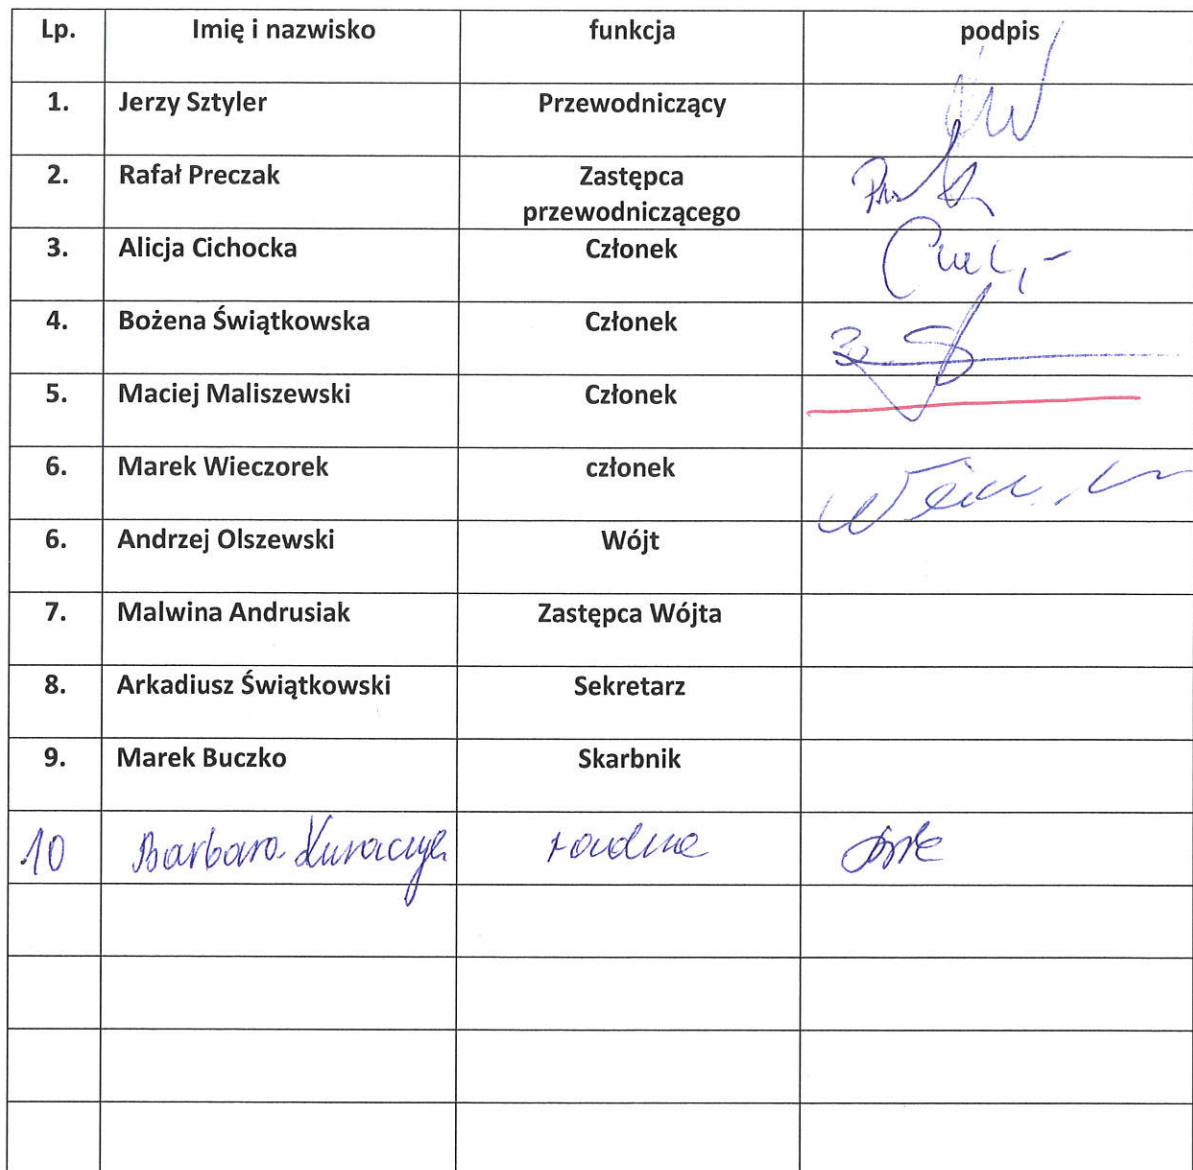 Lp. Imię i nazwisko funkcja podpis
1. Jerzy Sztyler Przewodniczący
2. Rafał Preczak Zastępca
przewodniczącego
3. Alicja Cichocka Członek
4. Bożena Świątkowska Członek
5. Maciej Maliszewski Członek
6. Marek Wieczorek członek
6. Andrzej Olszewski Wójt
7. Malwina Andrusiak Zastępca Wójta
8. Arkadiusz Świątkowski Sekretarz
9. Marek Buczko Skarbnik
10 Barbara radna